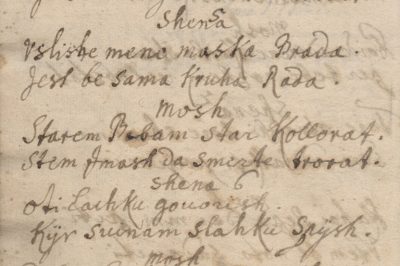 shena
Vslishe mene maska Brada.
Jest be sama kruha Rada.
mosh
Starem Babam star Kollorat.
Stem jmash da smerte trorat.
shena 6
oti Lachku gouorish.
Kÿr suinam slahku Spÿsh.
mosh